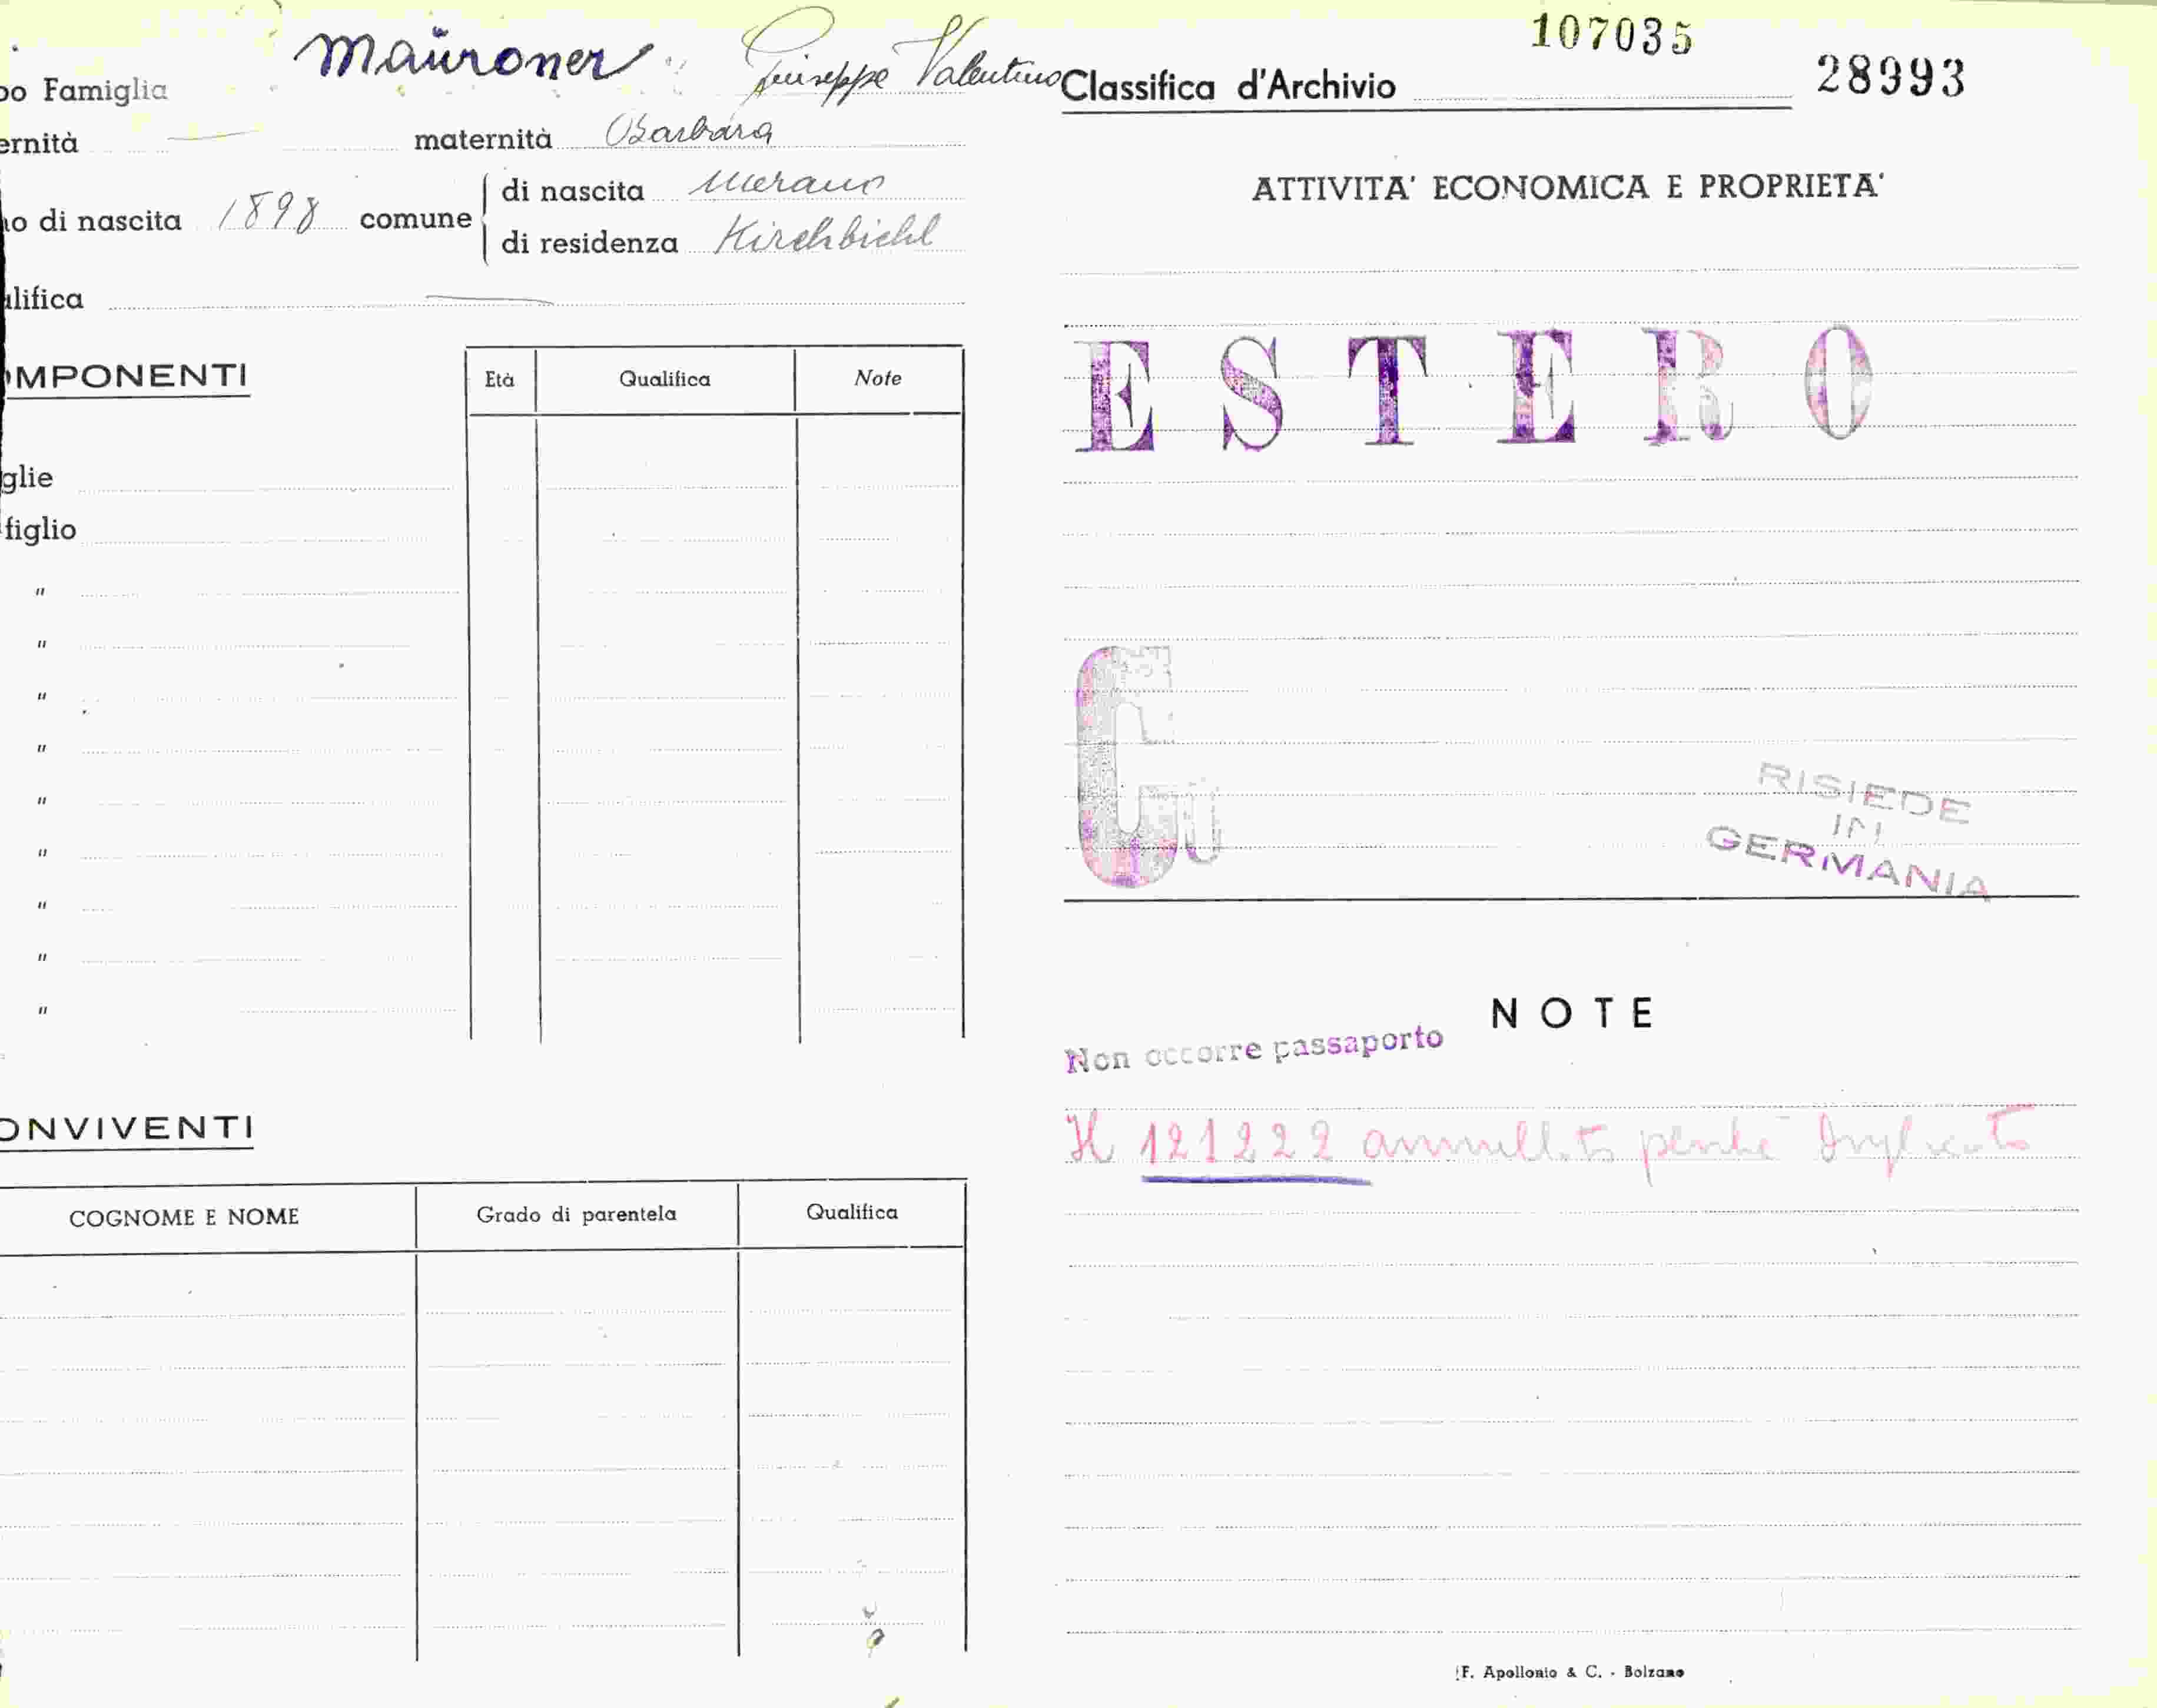 po Famiglia Maüroner Giuseppe Valentino
ernità maternità Barbara
no di nascita 1898 comune di nascita Merano
di residenza Kirchbichl
alifica
OMPONENTI
Età Qualifica Note
glie
figlio
"
"
"
"
"
"
"
"
"
ONVIVENTI
COGNOME E NOME Grado di parentela Qualifica
107035
Classifica d'Archivio 28993
ATTIVITA' ECONOMICA E PROPRIETA'
ESTERO
RISIEDE
IN
GERMANIA
NOTE
Non occorre passaporto
Il 121222 annullato perchè duplicato
F. Apollonio & C. - Bolzano